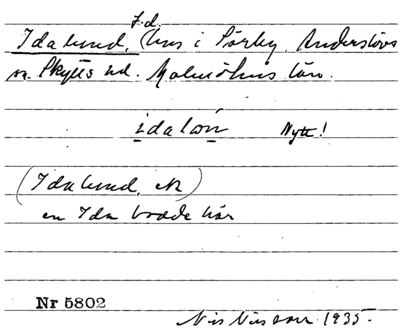 f.d.
Idalund, (hus i Sörby, Anderslövs
sn. Skytts hd. Malmöhus län.
idalón Nytt!
(Idalund, N)
en Ida bodde här
Nr 5802
Nils Nilsson 1935.